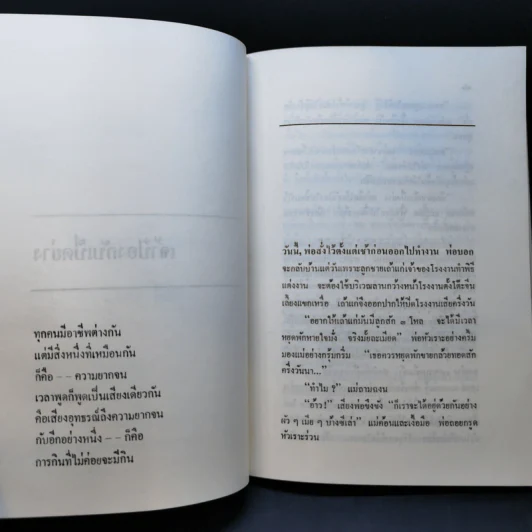 ทุกคนมีอาชีพต่างกัน
แต่มีสิ่งหนึ่งที่เหมือนกัน
ก็คือ -- ความยากจน
เวลาพูดก็พูดเป็นเสียงเดียวกัน
คือเสียงอุทธรณ์ถึงความยากจน
กับอีกอย่างหนึ่ง -- ก็คือ
การกินที่ไม่ค่อยจะมีกิน
วันนี้, พ่อสั่งไว้ตั้งแต่เช้าก่อนออกไปทำงาน พ่อบอก
จะกลับบ้านแต่วันเพราะลูกชายเถ้าแก่เจ้าของโรงงานทำพิธี
แต่งงาน จะต้องใช้บริเวณลานกว้างหน้าโรงงานตั้งโต๊ะจีน
เลี้ยงแขกเหรื่อ เถ้าแก่จึงออกปากให้ปิดโรงงานเสียครึ่งวัน
"อยากให้เถ้าแก่มันมีลูกสัก ๑ โหล จะได้มีเวลา
หยุดพักหายใจมั่ง จริงมั้ยละเมียด" พ่อหัวเราะอย่างครึ้ม
มองแม่อย่างกรุ้มกริ่ม "เธอควรหยุดพักขายกล้วยทอดสัก
ครึ่งวันนา..."
"ทำไม ?" แม่ถามฉงน
"อ้าว!" เสียงพ่อขึงขัง "ก็เราจะได้อยู่ด้วยกันอย่าง
ผัว ๆ เมีย ๆ บ้างซีเล่า" แม่ค้อนและเงื้อมือ พ่อถอยกรูด
หัวเราะร่วน